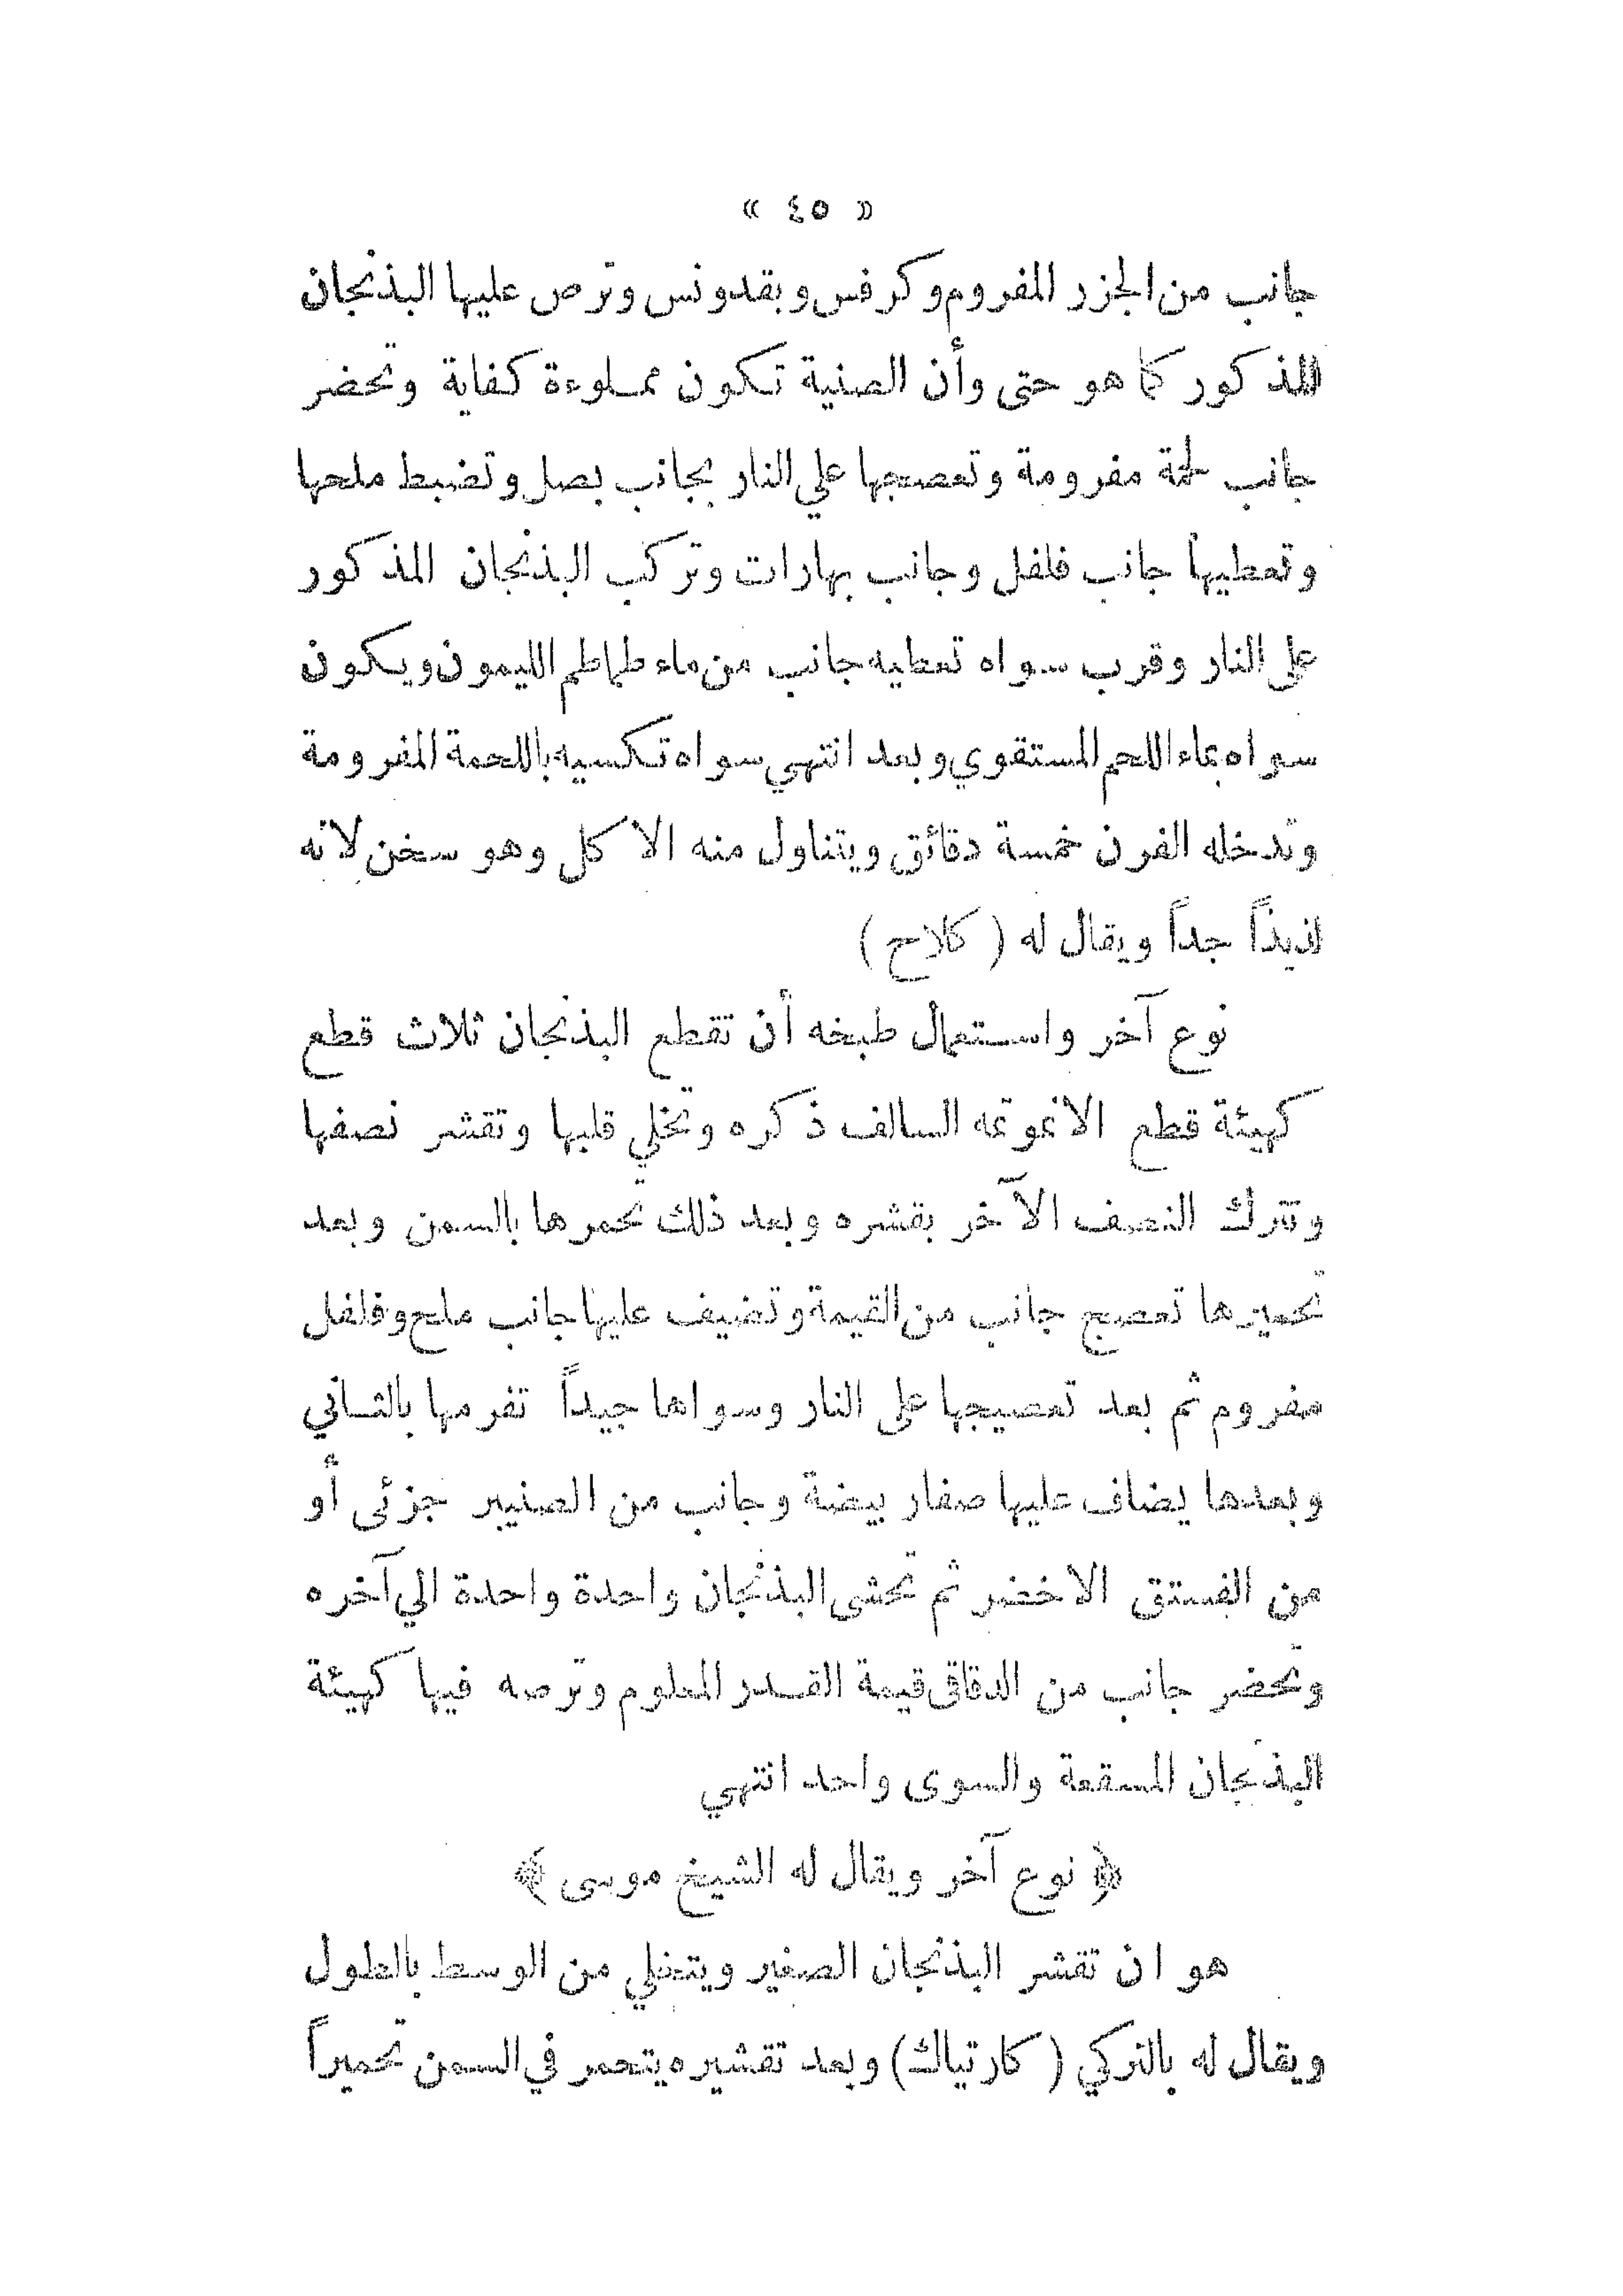 « ٤٥ »
جانب من الجزر المفروم وكرفس وبقدونس وترص عليها البذنجان
المذكور كما هو حتى وأن الصنية تكون مملوءة كفاية وتحضر
جانب لحمة مفرومة وتعصجها علي النار بجانب بصل وتضبط ملحها
وتعطيها جانب فلفل وجانب بهارات وتركب البذنجان المذكور
على النار وقرب سواه تعطيه جانب من ماء طماطم الليمون ويكون
سواه بماء اللحم المستقوي وبعد انتهي سواه تكسيه باللحمة المفرومة
وتدخله الفرن خمسة دقائق ويتناول منه الاكل وهو سخن لانه
لذيذاً جداً ويقال له ( كلاح )
نوع آخر واستعمال طبخه أن تقطع البذنجان ثلاث قطع
كهيئة قطع الانموتمه السالف ذكره وتخلي قلبها وتقشر نصفها
وتترك النصف الآخر بقشره وبعد ذلك تحمرها بالسمن وبعد
تحميرها تعصج جانب من القيمة وتضيف عليها جانب ملح وفلفل
مفروم ثم بعد تعصيجها على النار وسواها جيداً تفرمها بالثاني
وبعدها يضاف عليها صفار بيضة وجانب من الصنيبر جزئى أو
من الفستق الاخضر ثم تحشى البذنجان واحدة واحدة الي آخره
وتحضر جانب من الدقاق قيمة القدر المعلوم وترصه فيها كهيئة
البذنجان المسقعة والسوى واحد انتهي
﴿ نوع آخر ويقال له الشيخ موسى ﴾
هو ان تقشر البذنجان الصغير ويتخلي من الوسط بالطول
ويقال له بالتركي ( كارتياك ) وبعد تقشيره يتحمر في السمن تحميراً